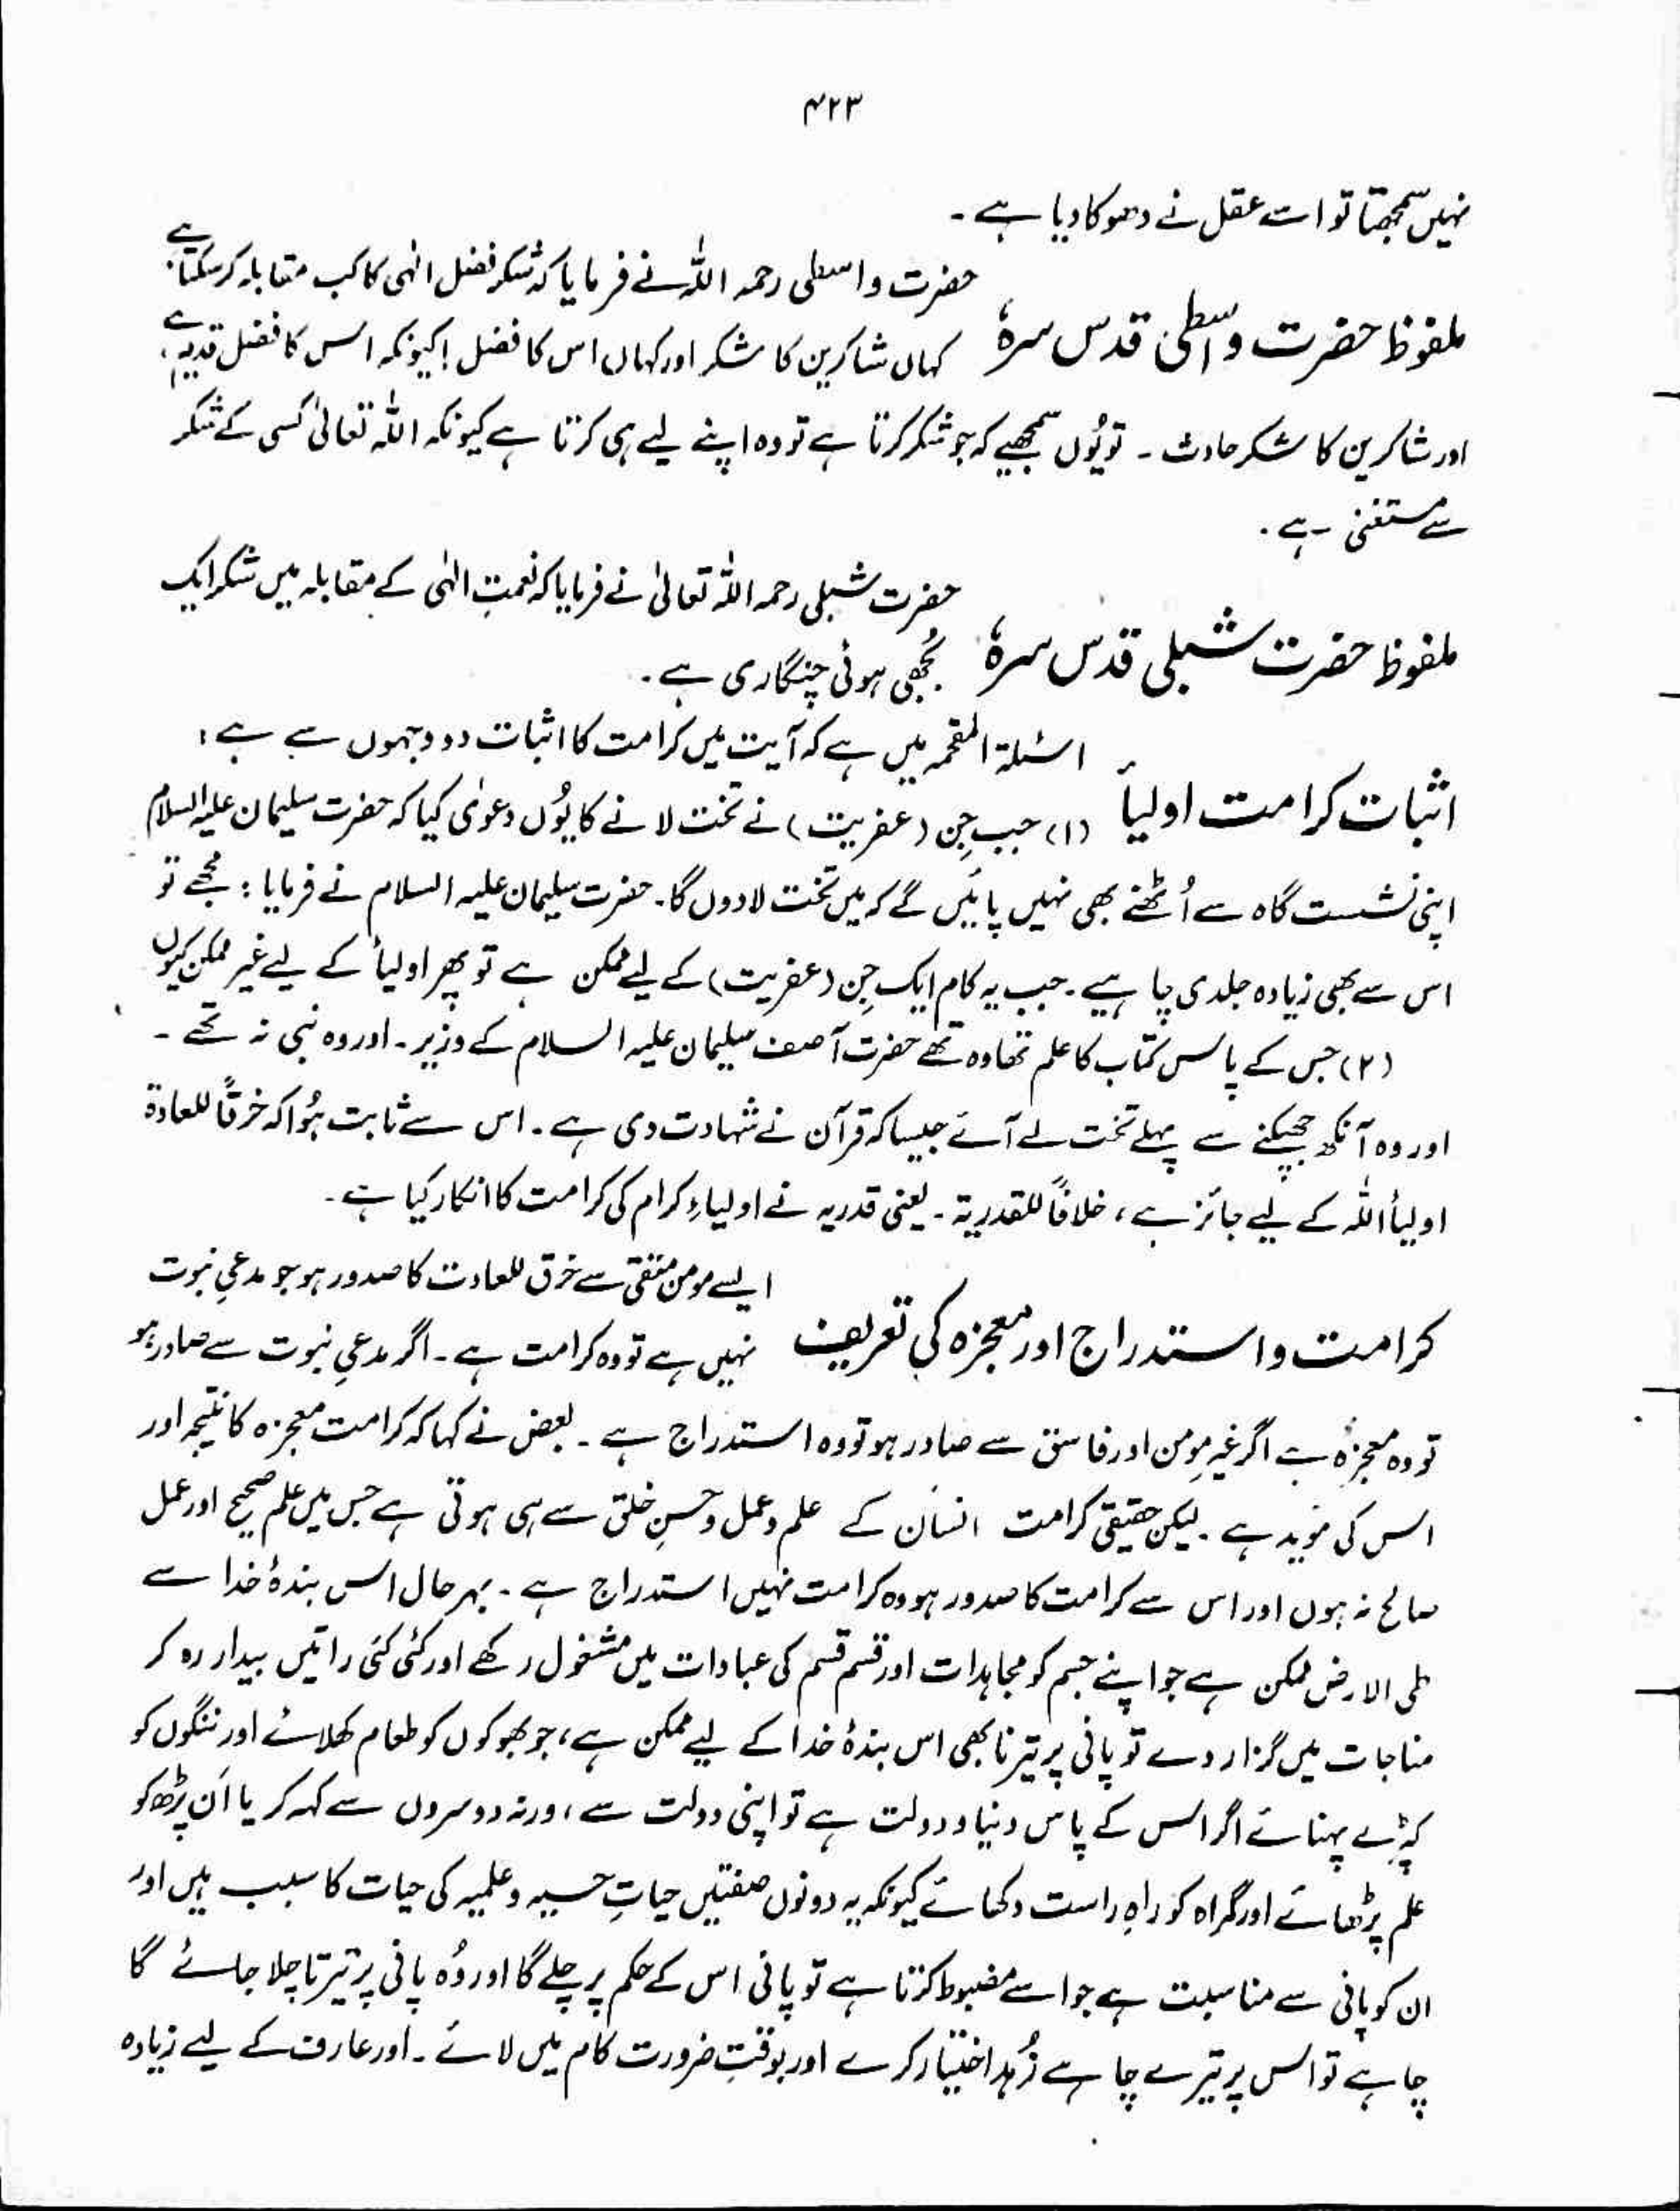 ۴۲۳
نہیں سمجھتا تو اسے عقل نے دھوکا دیا ہے ۔
حضرت واسطی رحمہ اللہ نے فرمایا کہ شکر فضل الٰہی کا کب مقابلہ کر سکتا ہے
ملفوظ حضرت واسطی قدس سرہٗ
کہاں شاکرین کا شکر اور کہاں اس کا فضل ! کیونکہ اس کا فضل قدیم ہے
اور شاکرین کا شکر حادث ۔ تو یُوں سمجھیے کہ جو شکر کرتا ہے تو وہ اپنے لیے ہی کرتا ہے کیونکہ اللہ تعالیٰ کسی کے شکر
سے مستغنی ہے ۔
حضرت شبلی رحمہ اللہ تعالیٰ نے فرمایا کہ نعمتِ الٰہی کے مقابلہ میں شکر ایک
ملفوظ حضرت شبلی قدس سرہٗ
بُجھی ہوئی چنگاری ہے ۔
اسئلۃ المقحمہ میں ہے کہ آیت میں کرامت کا اثبات دو وجہوں سے ہے :
اثبات کرامت اولیأ
(۱) جب جِن (عفریت) نے تخت لانے کا یُوں دعوٰی کیا کہ حضرت سلیمان علیہ السلام
اپنی نشست گاہ سے اُٹھنے بھی نہیں پائیں گے کہ میں تخت لا دوں گا۔ حضرت سلیمان علیہ السلام نے فرمایا : مجھے تو
اس سے بھی زیادہ جلدی چاہیے ۔ جب یہ کام ایک جِن (عفریت) کے لیے ممکن ہے تو پھر اولیأ کے لیے غیر ممکن کیوں
(۲) جس کے پاس کتاب کا علم تھا وہ تھے حضرت آصف سلیمان علیہ السلام کے وزیر ۔ اور وہ نبی نہ تھے ۔
اور وہ آنکھ جھپکنے سے پہلے تخت لے آئے جیسا کہ قرآن نے شہادت دی ہے ۔ اس سے ثابت ہُوا کہ خرقاً للعادۃ
اولیأ اللہ کے لیے جائز ہے ، خلافاً للقدریۃ ۔ یعنی قدریہ نے اولیاءِ کرام کی کرامت کا انکار کیا ہے ۔
ایسے مومن متقی سے خرق للعادت کا صدور ہو جو مدعیِ نبوت
کرامت و استدراج اور معجزہ کی تعریف
نہیں ہے تو وہ کرامت ہے ۔ اگر مدعیِ نبوت سے صادر ہو
تو وہ معجزہ ہے اگر غیر مومن اور فاسق سے صادر ہو تو وہ استدراج ہے ۔ بعض نے کہا کہ کرامت معجزہ کا نتیجہ اور
اس کی مؤید ہے ۔ لیکن حقیقی کرامت انسان کے علم و عمل و حسنِ خلق سے ہی ہوتی ہے جس میں علم صحیح اور عمل
صالح نہ ہوں اور اس سے کرامت کا صدور ہو وہ کرامت نہیں استدراج ہے ۔ بہرحال اس بندۂ خدا سے
طی الارض ممکن ہے جو اپنے جسم کو مجاہدات اور قسم قسم کی عبادات میں مشغول رکھے اور کئی کئی راتیں بیدار رہ کر
مناجات میں گزار دے تو پانی پر تیرنا بھی اس بندۂ خدا کے لیے ممکن ہے ، جو بھوکوں کو طعام کھلائے اور ننگوں کو
کپڑے پہنائے اگر اس کے پاس دنیا و دولت ہے تو اپنی دولت سے ، ورنہ دوسروں سے کہہ کر یا اَن پڑھ کو
علم پڑھائے اور گمراہ کو راہِ راست دکھائے کیونکہ یہ دونوں صفتیں حیاتِ حسیہ و علمیہ کی حیات کا سبب ہیں اور
ان کو پانی سے مناسبت ہے جو اسے مضبوط کرتا ہے تو پانی اس کے حکم پر چلے گا اور وُہ پانی پر تیرتا چلا جائے گا
چاہے تو اس پر تیرے چاہے زُہد اختیار کرے اور بوقتِ ضرورت کام میں لائے ۔ اور عارف کے لیے زیادہ